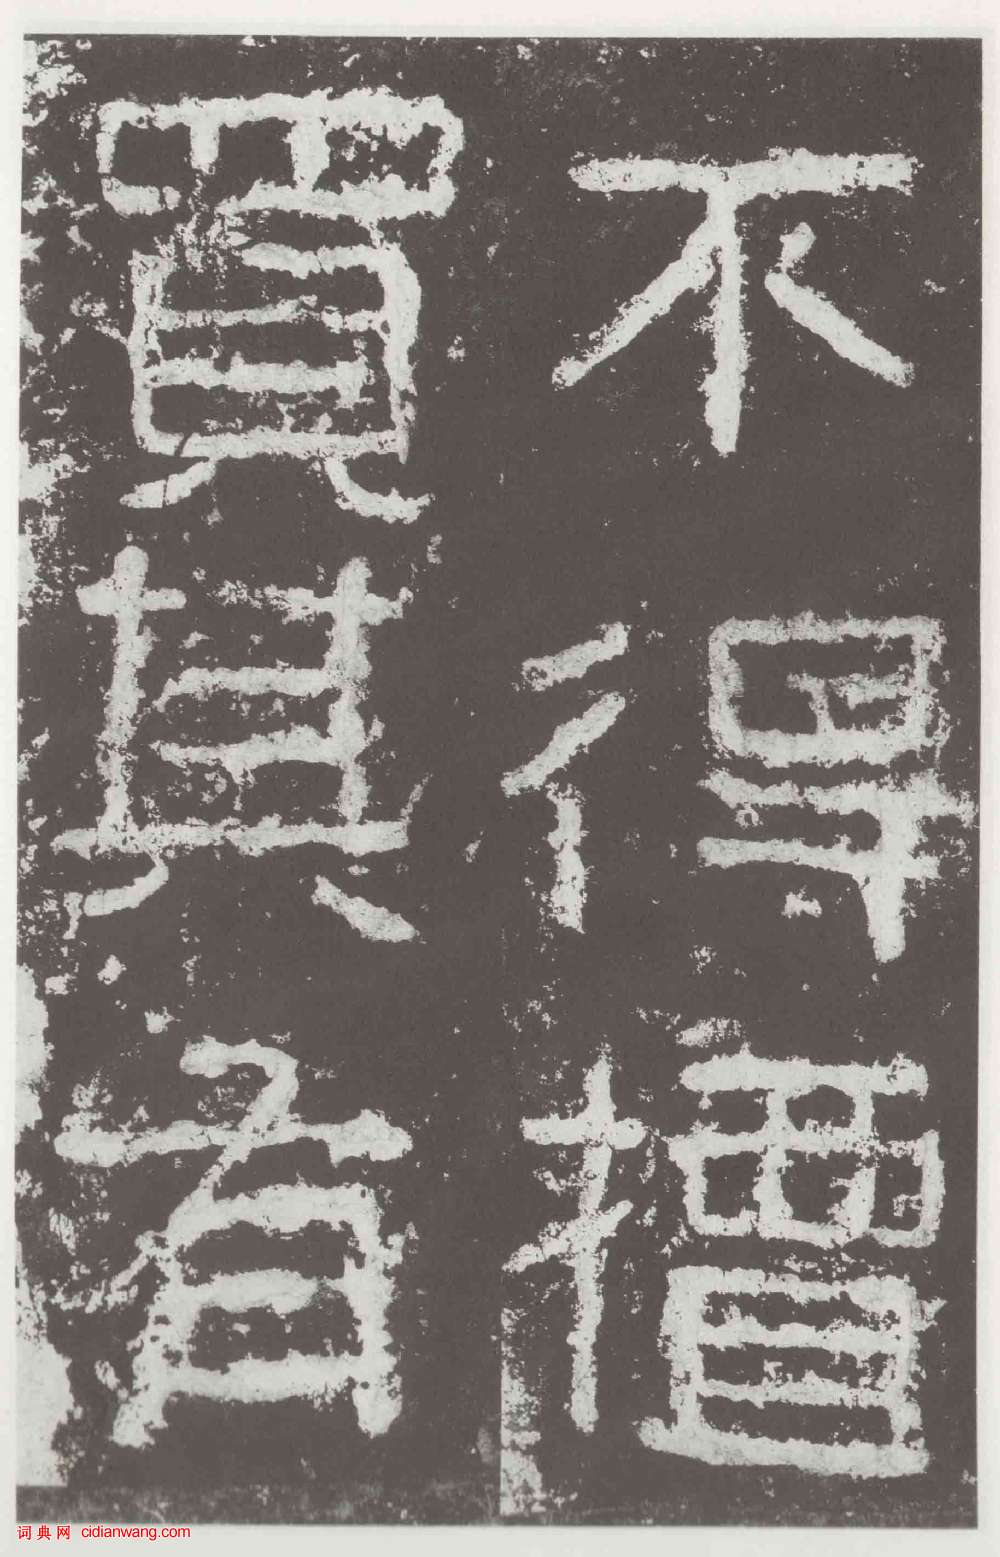 不得擅
買其有
词典网 cidianwang.com